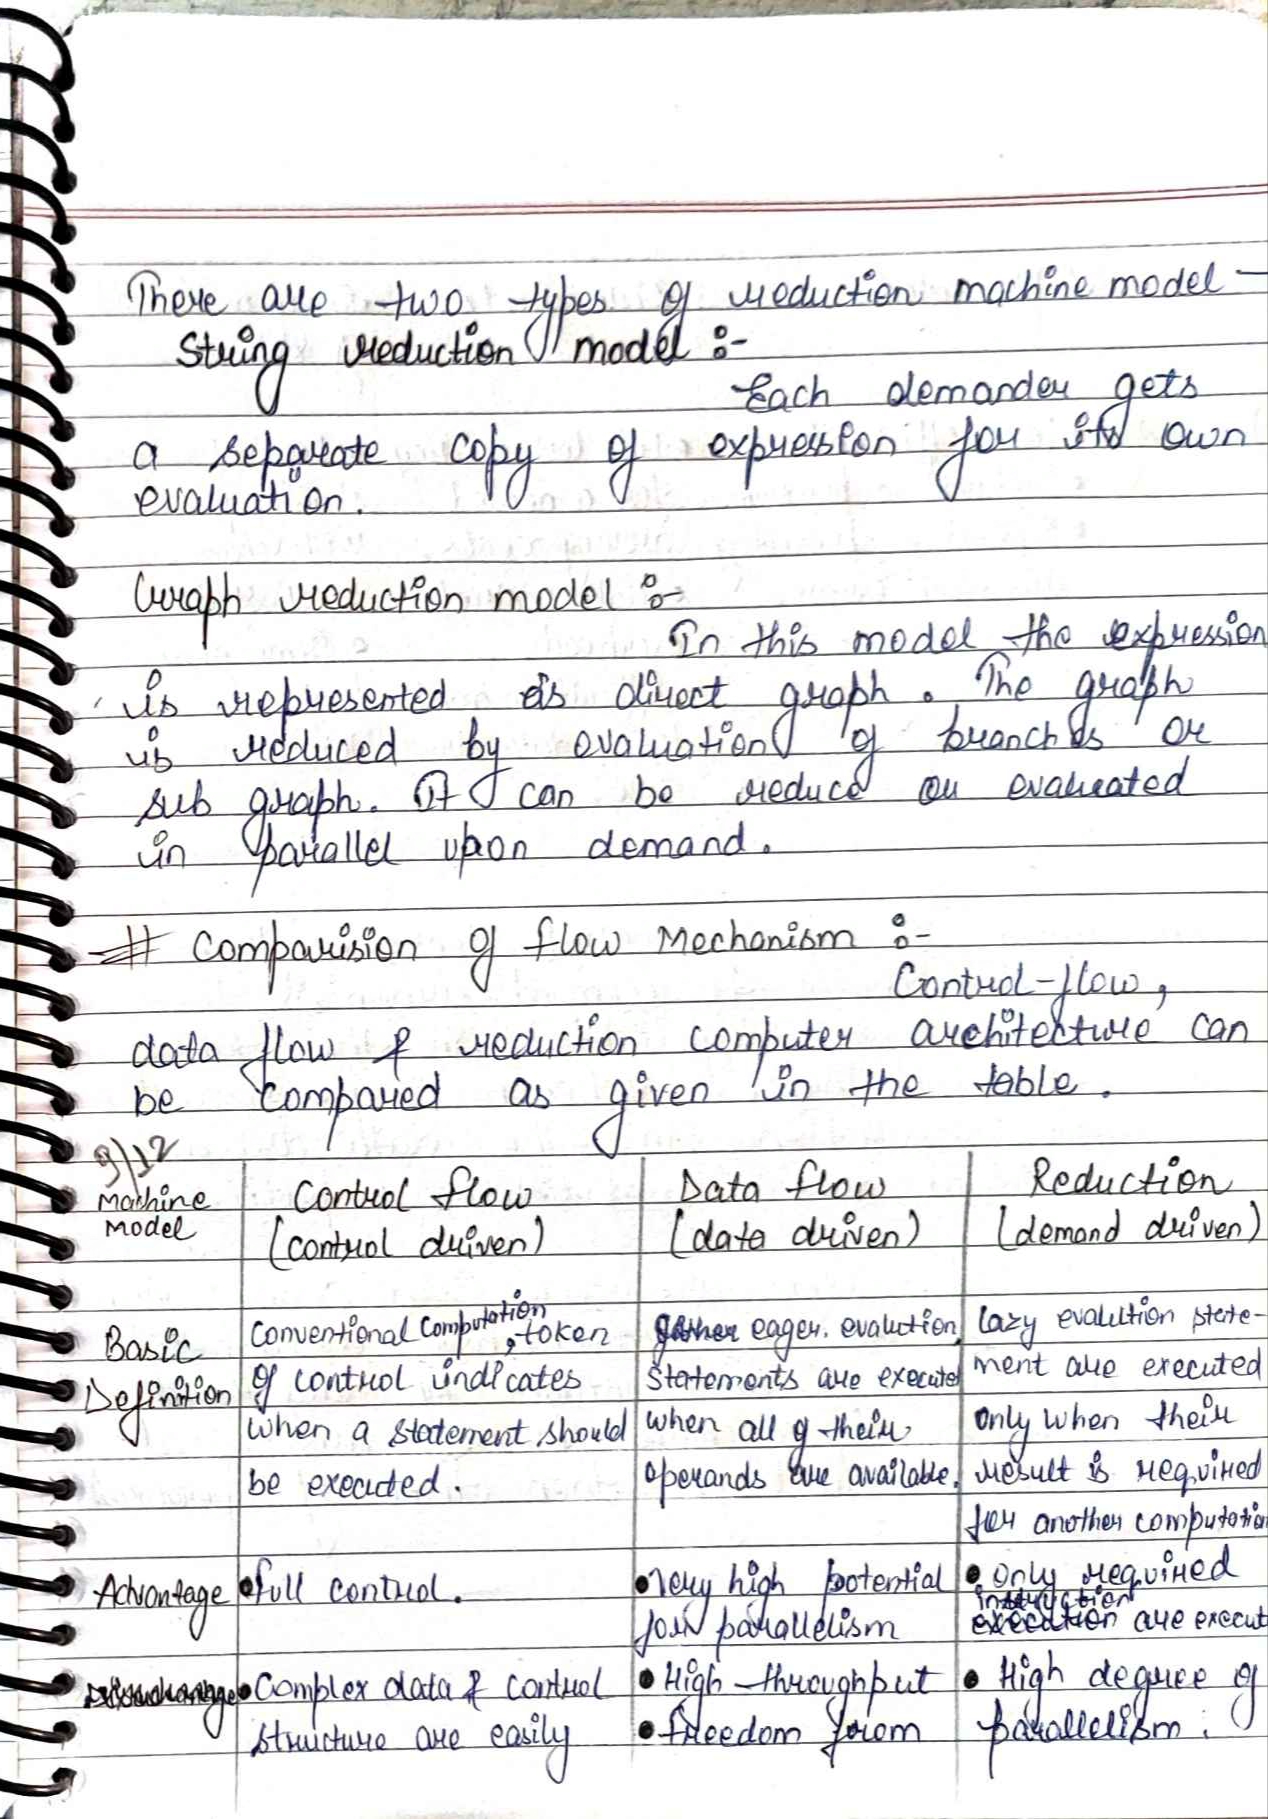 There are two types of reduction machine model -
String reduction model :-
Each demander gets
a separate copy of expression for its own
evaluation.
Graph reduction model :-
In this model the expression
is represented as direct graph. The graph
is reduced by evaluation of branches or
sub graph. It can be reduce or evaluated
in parallel upon demand.
# Comparision of flow Mechanism :-
Control-flow,
data flow & reduction computer architecture can
be compared as given in the table.
9/12
Machine Model
Control flow
(control driven)
Data flow
(data driven)
Reduction
(demand driven)
Basic
Definition
Conventional computation, token
of control indicates
when a statement should
be executed.
eager. evalution,
statements are executed
when all of their
operands are available.
lazy evalution state-
ment are executed
only when their
result is required
for another computation
Advantage
• Full control.
• Complex data & control
structure are easily
• Very high potential
for parallelism
• High throughput
• freedom from
• Only required
instruction
are execut
• High degree of
parallelism.